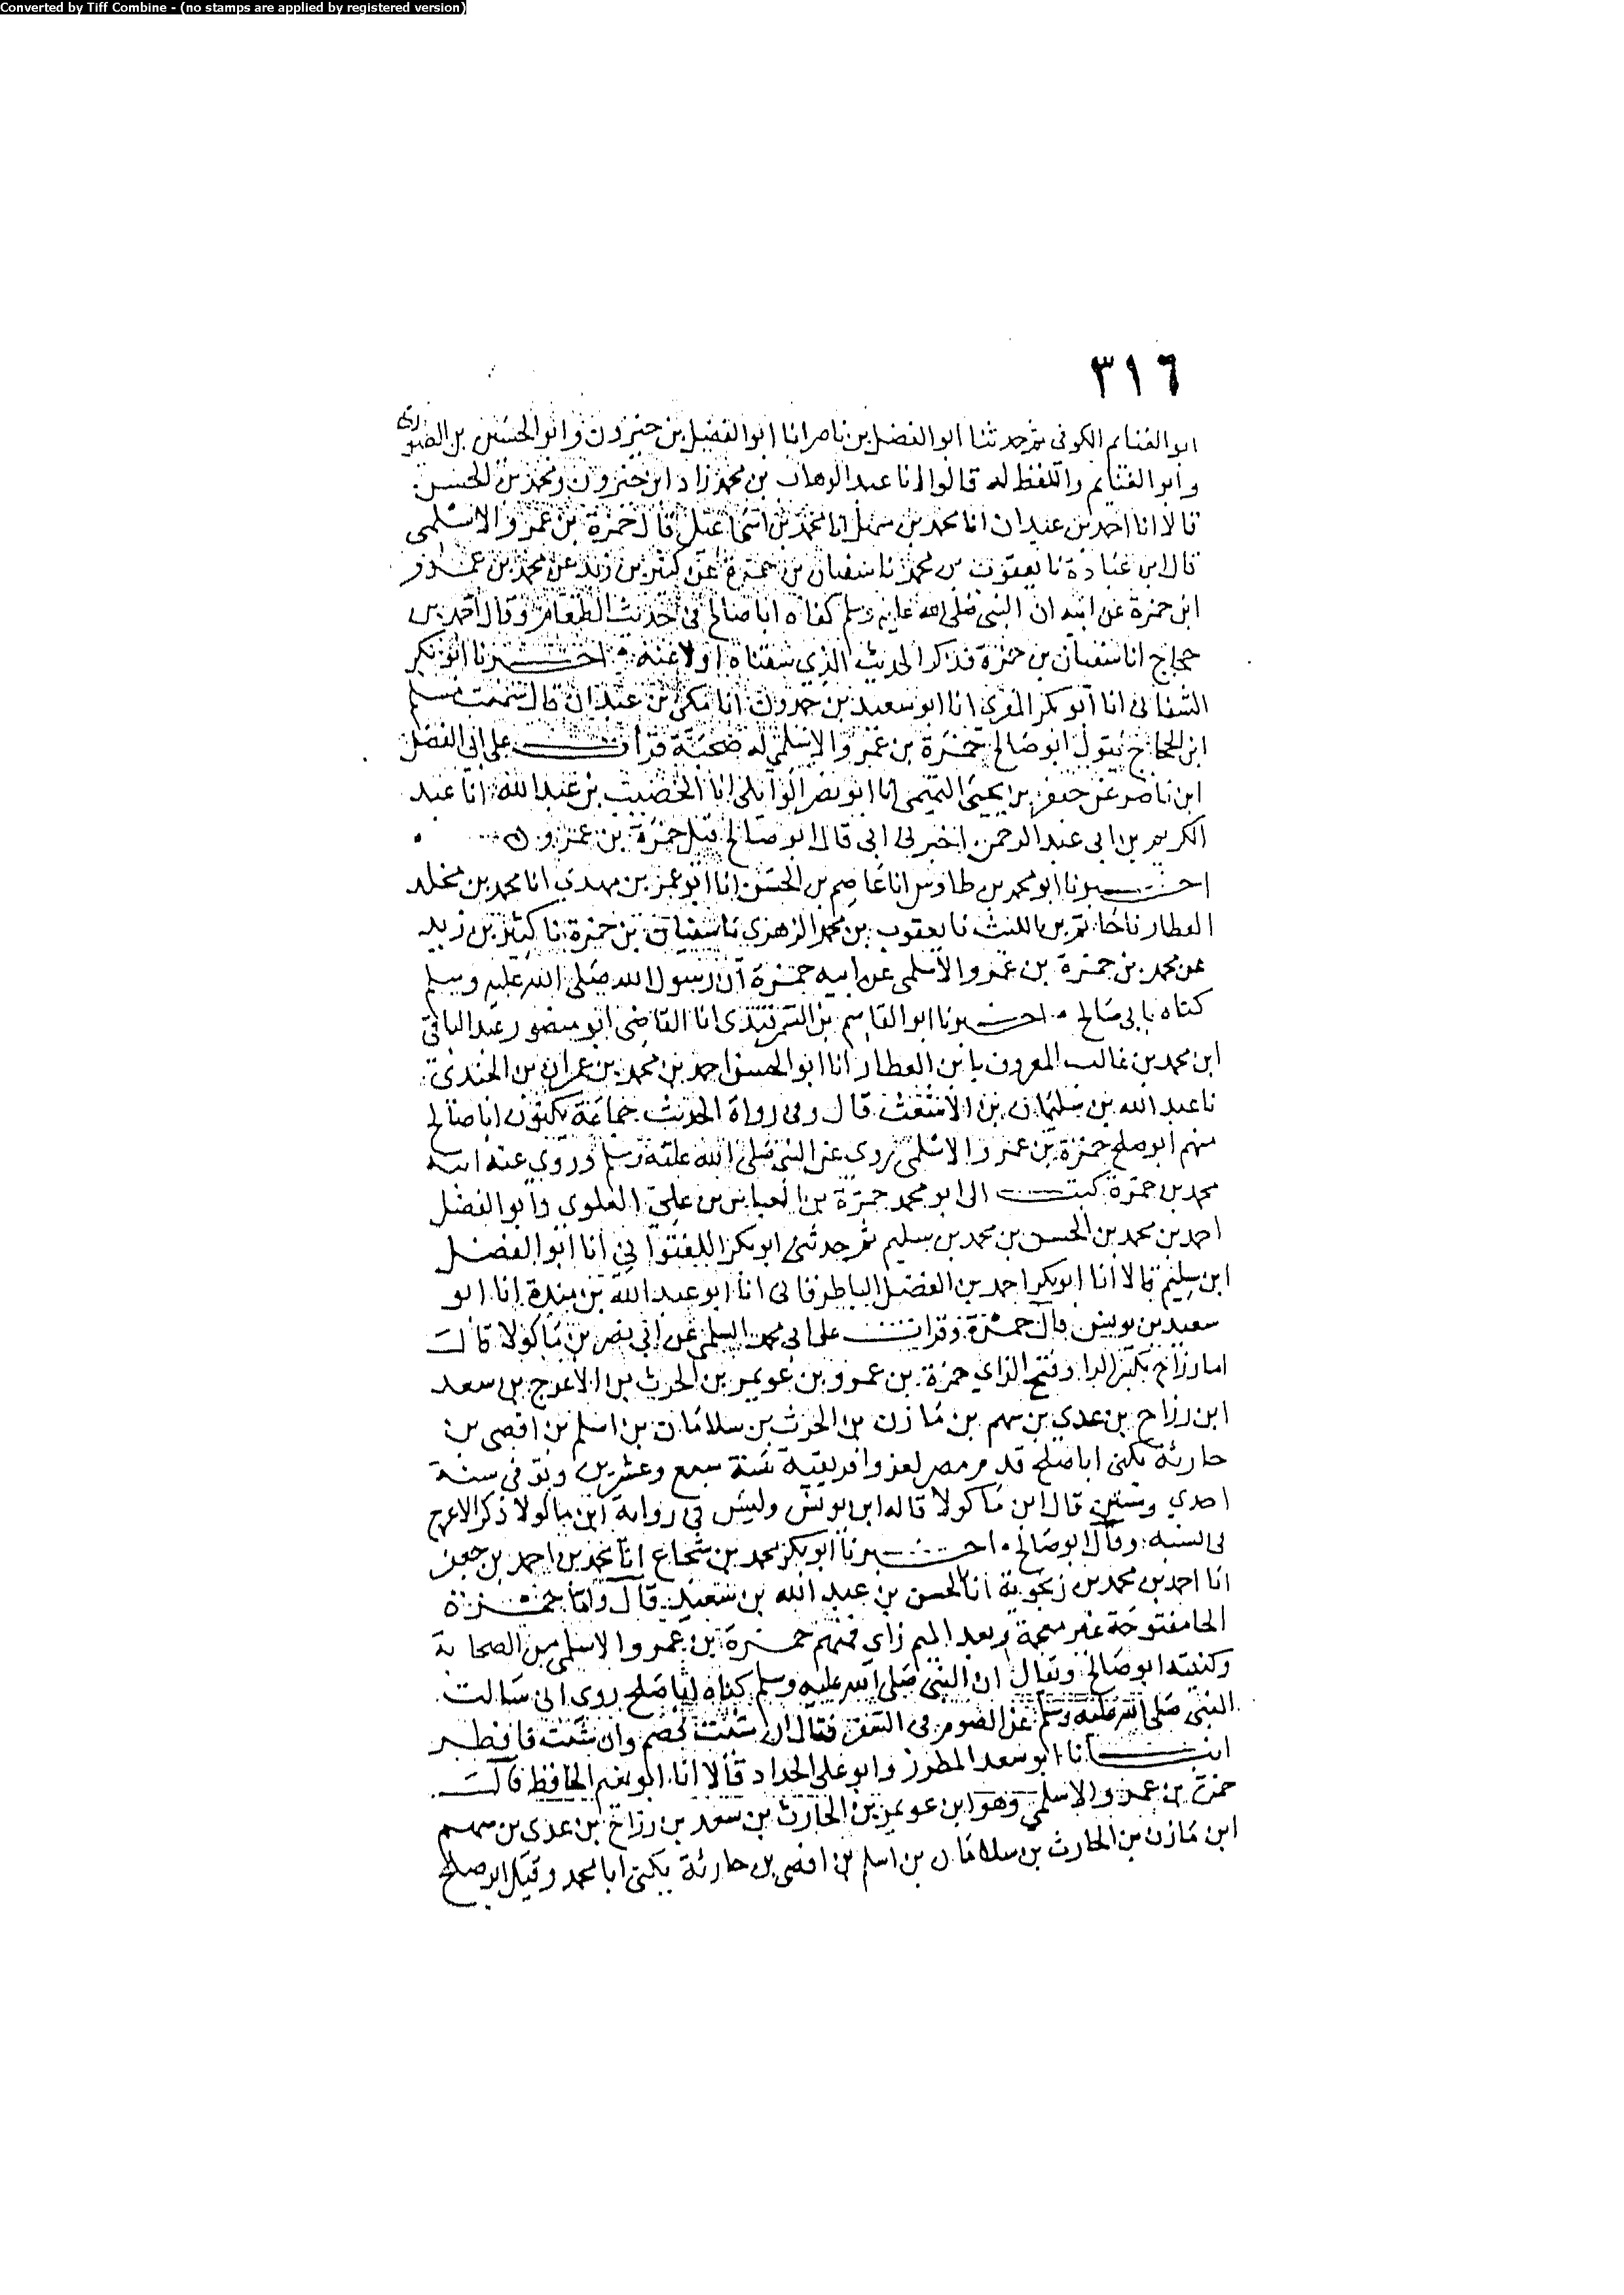 Converted by Tiff Combine - (no stamps are applied by registered version)
٣١٦
ابو الغنايم الكوفي ثم حدثنا ابو الفضل بن ناصر انا ابو الفضل بن خيرون وابو الحسين بن الطيوري
وابو الغنايم واللفظ له قالوا انا عبد الوهاب بن محمد زاد ابن خيرون ومحمد بن الحسن
قالا انا احمد بن عبدان انا محمد بن سهل انا محمد بن اسماعيل قال حمزة بن عمرو الاسلمي
قال ابن عبادة نا يعقوب بن محمد نا سفيان بن حمزة عن كثير بن زيد عن محمد بن عمرو
ابن حمزة عن ابيه ان النبي صلى الله عليه وسلم كناه ابا صالح في حديث الطعام وقال احمد بن
حجاج انا سفيان بن حمزة فذكر الحديث الذي سقناه اولا عنه اخبرنا ابو بكر
الشقاني انا ابو بكر المغربي انا ابو سعيد بن حمدون انا مكي بن عبدان قال سمعت مسلم
ابن الحجاج يقول ابو صالح حمزة بن عمرو الاسلمي له صحبة قرات على ابي الفضل
ابن ناصر عن جعفر بن يحيى التميمي انا ابو نصر الوايلي انا الخصيب بن عبد الله انا عبد
الكريم بن ابي عبد الرحمن اخبرني ابي قال ابو صالح قيل حمزة بن عمرو
اخبرنا ابو محمد بن طاوس انا عاصم بن الحسن انا ابو عمر بن مهدي انا محمد بن مخلد
العطار نا حاتم بن الليث نا يعقوب بن محمد الزهري نا سفيان بن حمزة نا كثير بن زيد
عن محمد بن حمزة بن عمرو الاسلمي عن ابيه حمزة ان رسول الله صلى الله عليه وسلم
كناه بابي صالح اخبرنا ابو القاسم بن السمرقندي انا القاضي ابو منصور عبد الباقي
ابن محمد بن غالب المعروف بابن العطار انا ابو الحسن احمد بن محمد بن عمران بن الجندي
نا عبد الله بن سليمان بن الاشعث قال وفي رواة الحديث جماعة يكنون ابا صالح
منهم ابو صلح حمزة بن عمرو الاسلمي روى عن النبي صلى الله عليه وسلم وروى عنه ابنه
محمد بن حمزة كتب الى ابو محمد حمزة بن العباس بن علي العلوي وابو الفضل
احمد بن محمد بن الحسن بن محمد بن سليم ثم حدثني ابو بكر اللفتواني انا ابو الفضل
ابن سليم قالا انا ابو بكر احمد بن الفضل الباطرقاني انا ابو عبد الله بن مندة انا ابو
سعيد بن يونس قال حمزة وقرات على ابي محمد السلمي عن ابي نصر بن ماكولا قال
اما رزاح بكسر الرا وفتح الزاي حمزة بن عمرو بن عويمر بن الحرث بن الاعرج بن سعد
ابن رزاح بن عدي بن سهم بن مازن بن الحرث بن سلامان بن اسلم بن افصى بن
حارثة يكنى ابا صلح قدم مصر لغزو افريقية سنة سبع وعشرين وتوفي سنة
احدي وستين قال ابن ماكولا قاله ابن يونس وليس في رواية ابن ماكولا ذكر الاعرج
في النسبه وقال ابو صالح اخبرنا ابو بكر محمد بن شجاع انا محمد بن احمد بن جعفر
انا احمد بن محمد بن زنجوية انا الحسن بن عبد الله بن سعيد قال واما حمزة
الحا مفتوحة غير معجمة وبعد الميم زاي فمنهم حمزة بن عمرو الاسلمي من الصحابة
وكنيته ابو صالح ويقال ان النبي صلى الله عليه وسلم كناه ابا صلح روى اني سالت
النبي صلى الله عليه وسلم عن الصوم في السفر فقال ان شئت فصم وان شئت فافطر
انبانا ابو سعد المطرز وابو علي الحداد قالا انا ابو نعيم الحافظ قال
حمزة بن عمرو الاسلمي وهو ابن عويمر بن الحارث بن سعد بن رزاح بن عدي بن سهم
ابن مازن بن الحارث بن سلامان بن اسلم بن افصى بن حارثة يكنى ابا محمد وقيل ابو صلح